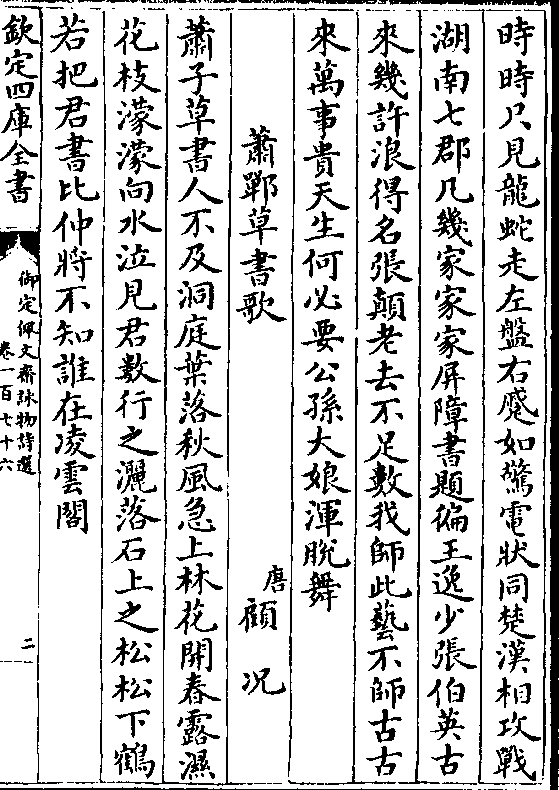 時時只見龍蛇走左盤右蹙如驚電狀同楚漢相攻戰
湖南七郡凡幾家家家屏障書題徧王逸少張伯英古
來幾許浪得名張顛老去不足數我師此藝不師古古
來萬事貴天生何必要公孫大娘渾脫舞
蕭鄲草書歌　唐顧況
蕭子草書人不及洞庭葉落秋風急上林花開春露濕
花枝濛濛向水泣見君數行之灑落石上之松松下鶴
若把君書比仲將不知誰在凌雲閣
欽定四庫全書
御定佩文齋詠物詩選
卷一百七十六
二